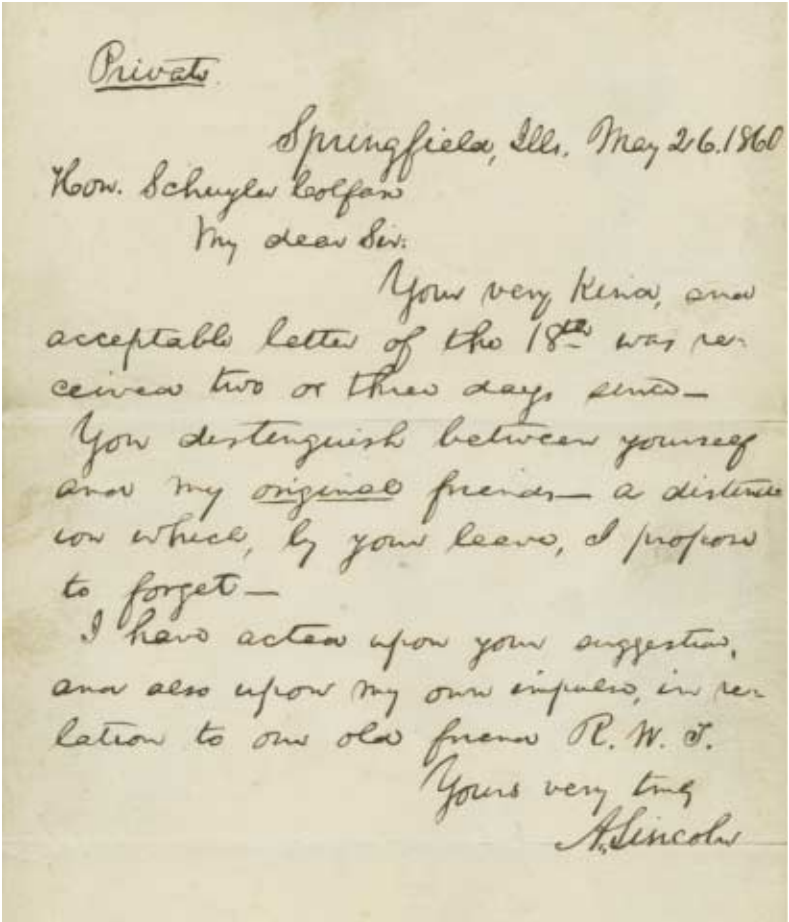 Private.
Springfield, Ills. May 26. 1860
Hon. Schuyler Colfax
My dear Sir:
Your very kind, and
acceptable letter of the 18th was re-
ceived two or three days since—
You distinguish between yourself
and my original friends— a distinct
ion which, by your leave, I propose
to forget—
I have acted upon your suggestion,
and also upon my own impulse, in re-
lation to our old friend R. W. T.
Yours very truly
A. Lincoln